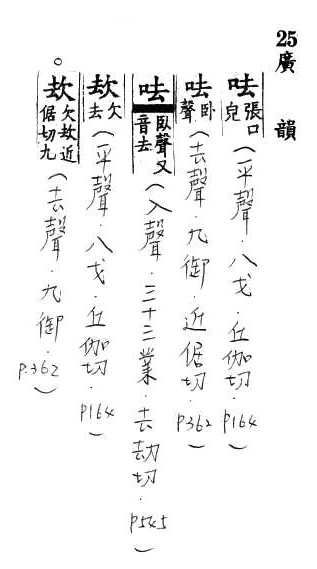 25廣韻
呿張口皃（平聲．八戈．丘伽切．P164）
呿臥聲（去聲．九御．近倨切．P362）
呿臥聲又音去（入聲．三十三業．去劫切．P545）
㰦欠去（平聲．八戈．丘伽切．P164）
㰦欠㰦近倨切九（去聲．九御．P.362）